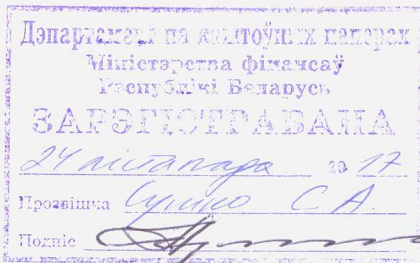 Дэпартамент па каштоўных паперах
Міністэрства фінансаў
Рэспублікі Беларусь
ЗАРЭГІСТРАВАНА
24 лістапада 20 17
Прозвішча С. А.
Подпіс